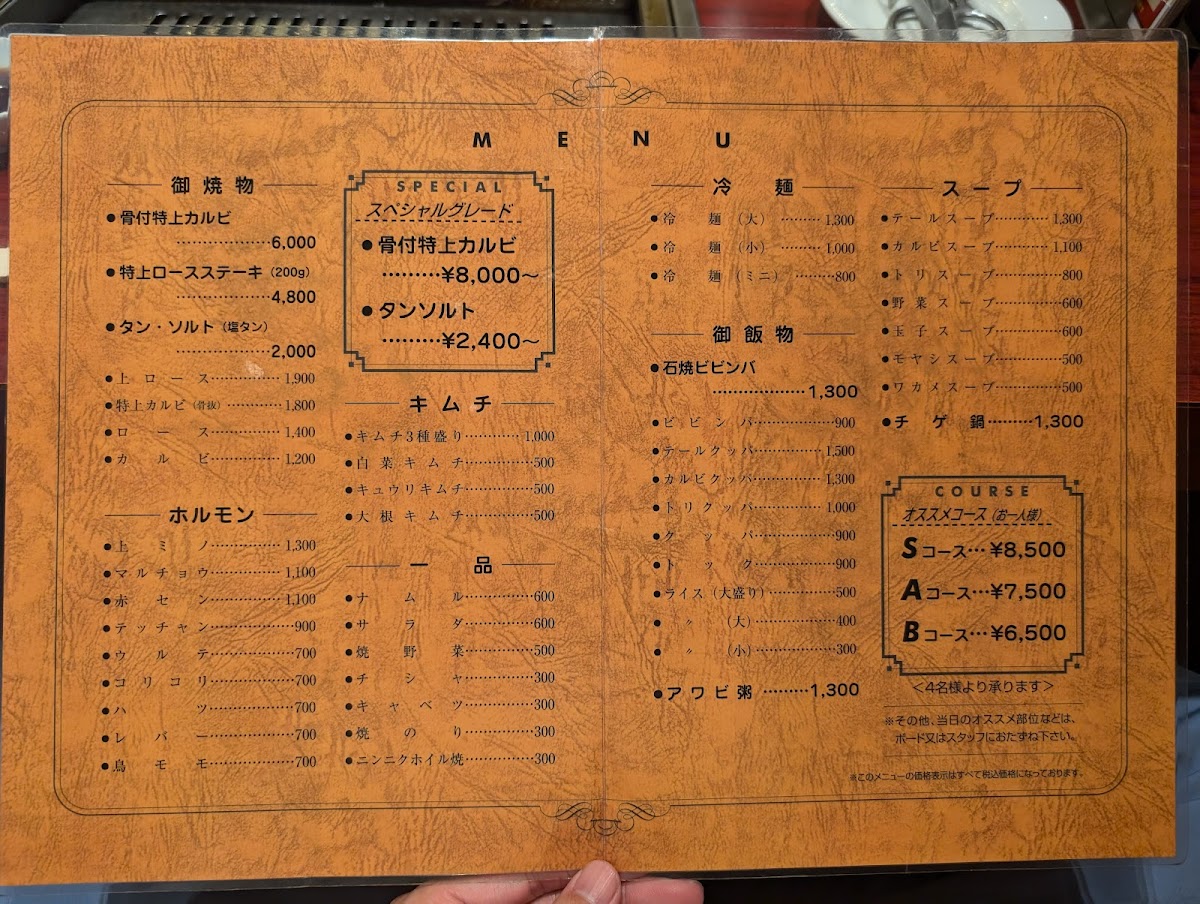 MENU
御焼物
●骨付特上カルビ
…………………6,000
●特上ロースステーキ（200g）
…………………4,800
●タン・ソルト（塩タン）
…………………2,000
●上ロース…………1,900
●特上カルビ（骨抜）…………1,800
●ロース…………1,400
●カルビ…………1,200
ホルモン
●上ミノ…………1,300
●マルチョウ…………1,100
●赤セン…………1,100
●テッチャン…………900
●ウルテ…………700
●コリコリ…………700
●ハツ…………700
●レバー…………700
●鳥モモ…………700
SPECIAL
スペシャルグレード
●骨付特上カルビ
………¥8,000〜
●タンソルト
………¥2,400〜
キムチ
●キムチ3種盛り…………1,000
●白菜キムチ…………500
●キュウリキムチ…………500
●大根キムチ…………500
一品
●ナムル…………600
●サラダ…………600
●焼野菜…………500
●チシャ…………300
●キャベツ…………300
●焼のり…………300
●ニンニクホイル焼…………300
冷麺
●冷麺（大）………1,300
●冷麺（小）………1,000
●冷麺（ミニ）………800
御飯物
●石焼ビビンバ
…………………1,300
●ビビンバ…………900
●テールクッパ…………1,500
●カルビクッパ…………1,300
●トリクッパ…………1,000
●クッパ…………900
●トック…………900
●ライス（大盛り）…………500
●〃（大）…………400
●〃（小）…………300
●アワビ粥………1,300
スープ
●テールスープ…………1,300
●カルビスープ…………1,100
●トリスープ…………800
●野菜スープ…………600
●玉子スープ…………600
●モヤシスープ…………500
●ワカメスープ…………500
●チゲ鍋………1,300
COURSE
オススメコース（お一人様）
Sコース…¥8,500
Aコース…¥7,500
Bコース…¥6,500
＜4名様より承ります＞
※その他、当日のオススメ部位などは、
ボード又はスタッフにおたずね下さい。
※このメニューの価格表示はすべて税込価格になっております。